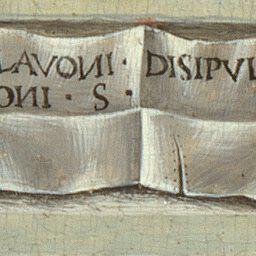 LAVONI · DISIPVL
ONI · S ·